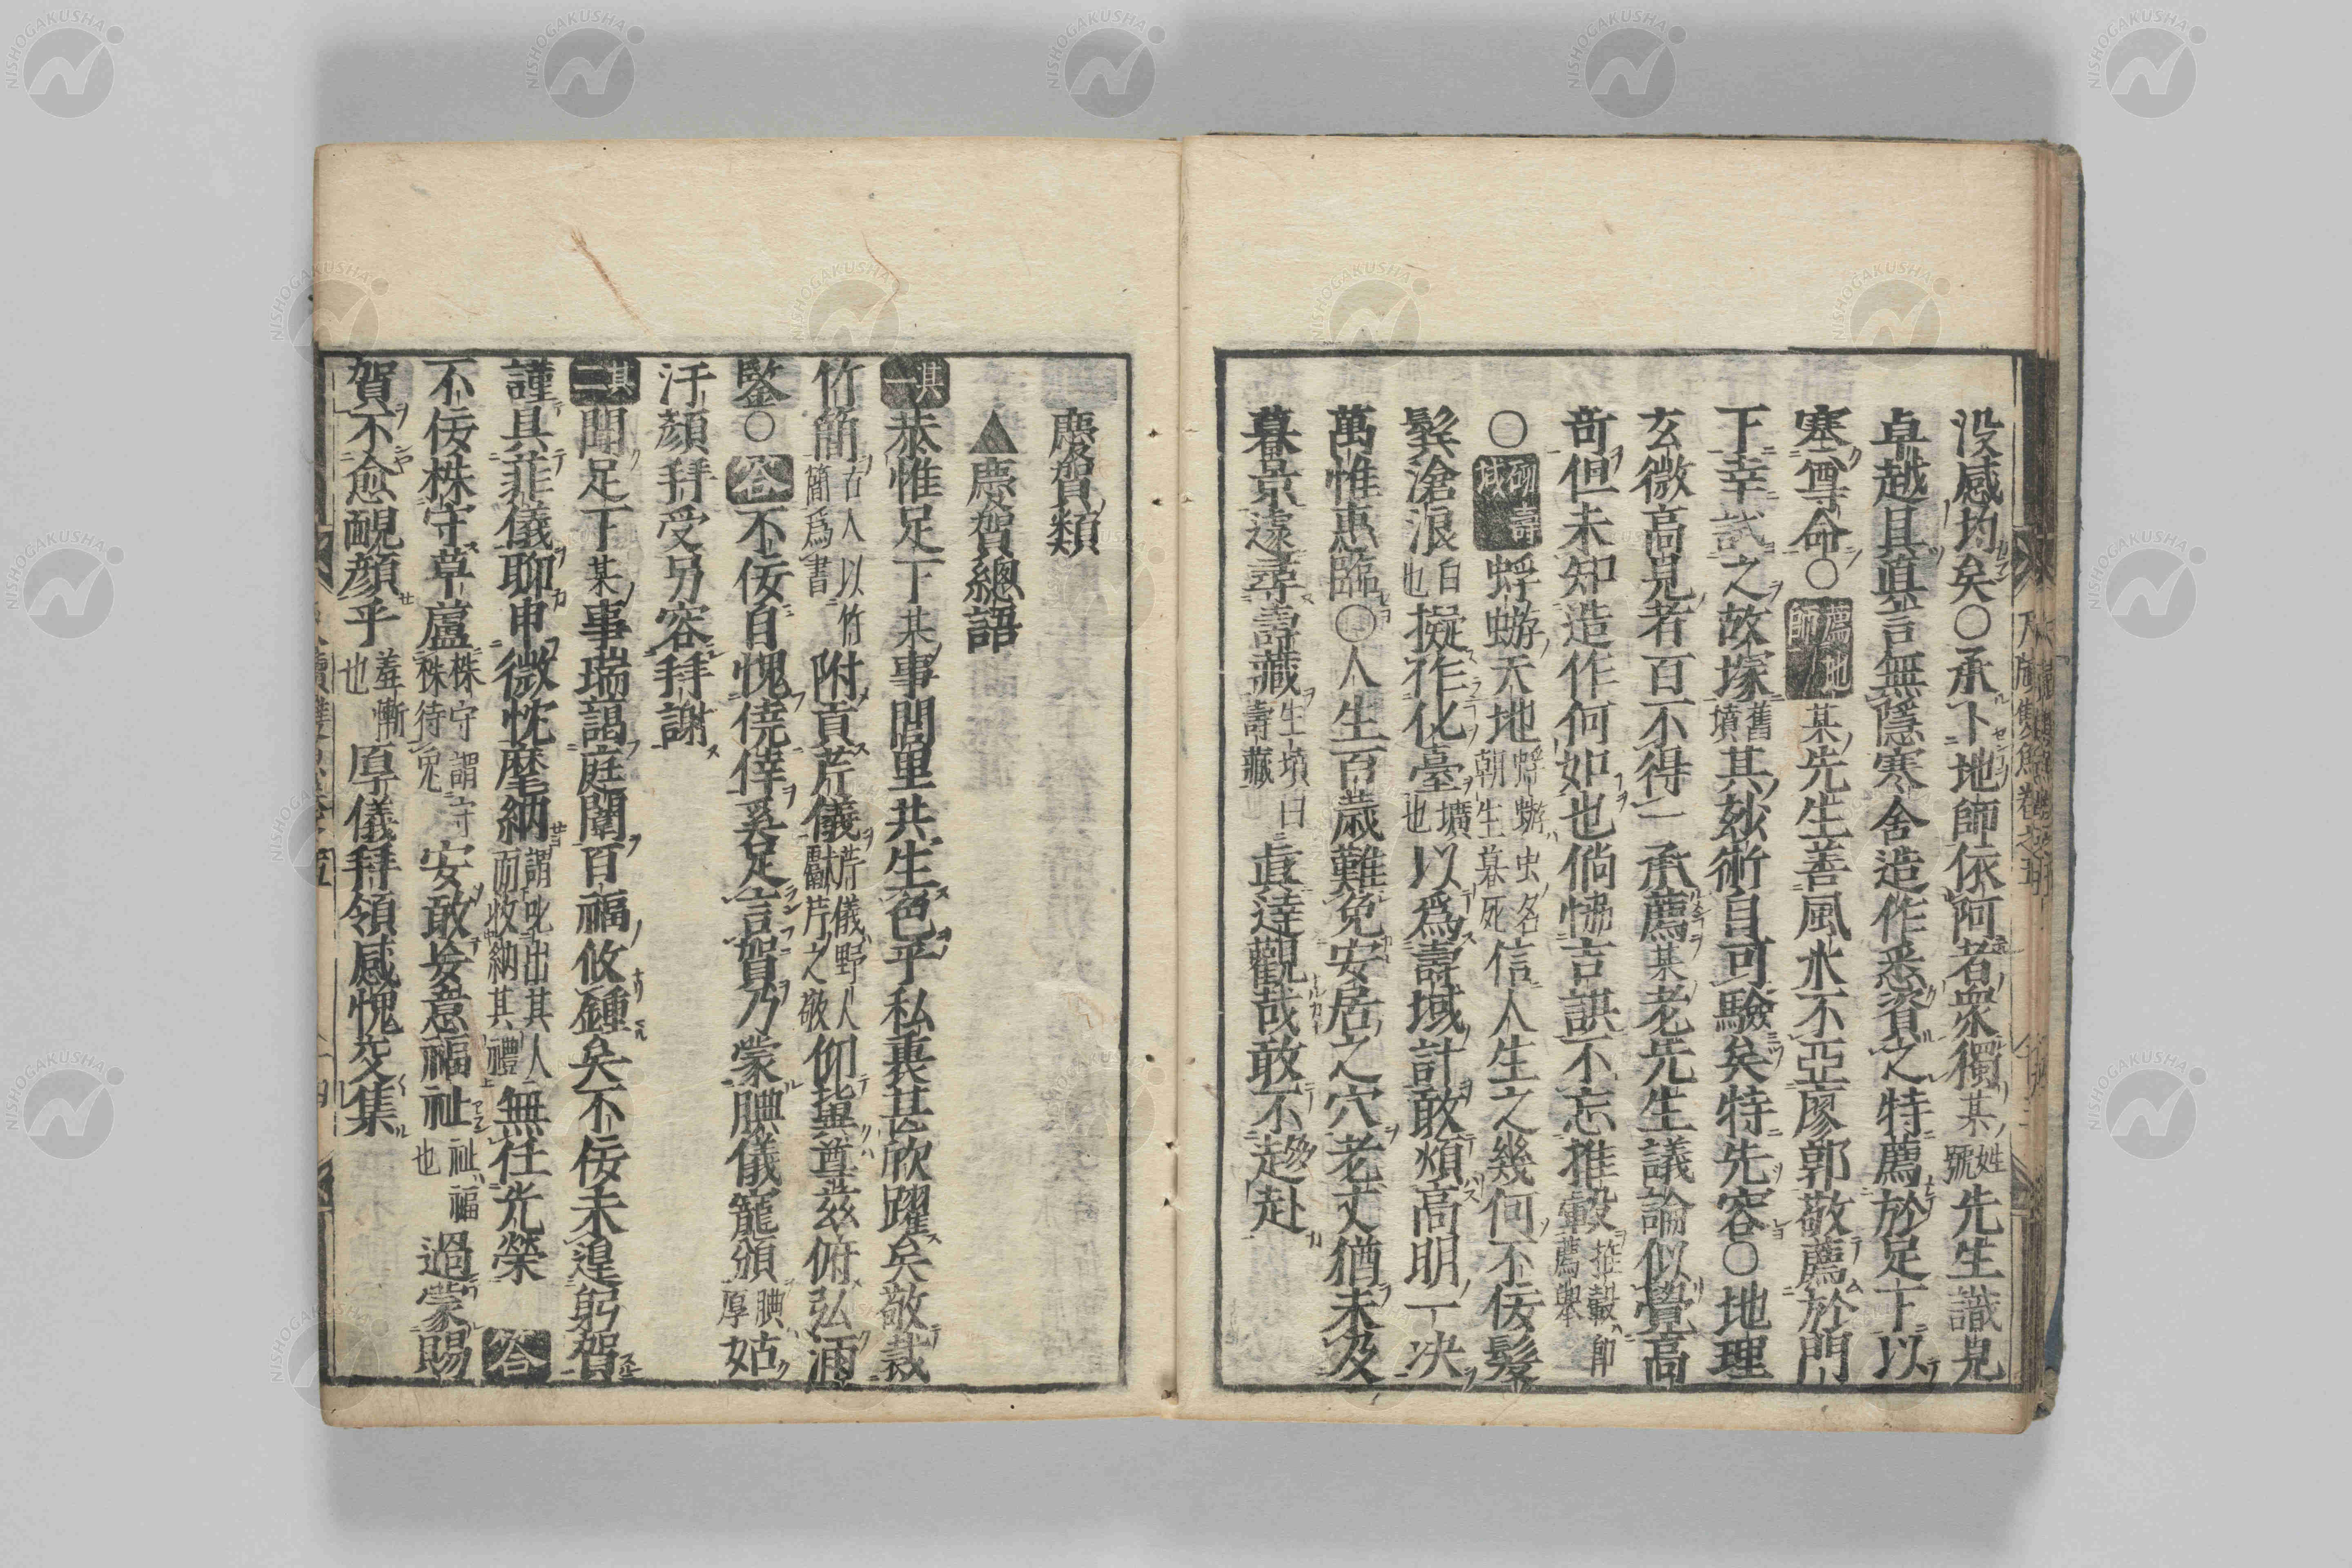 没感均矣〇承下地師依阿者衆獨某姓號先生識見
卓越其直言無隱寒舍造作悉資之特薦於足下以
塞尊命〇薦地師某先生善風水不亞廖郭敬薦於門
下幸試之故塚舊墳其玅術自可驗矣特先容〇地理
玄微高見者百不得一承薦某老先生議論似覺高
奇但未知造作何如也倘恊吉謀不忘推轂推轂即薦舉
〇砌壽域蜉蝣天地蜉蝣虫名朝生暮死信人生之幾何不佞髮
鬂滄浪白也擬作化臺壙也以爲壽域計敢煩高明一决
萬惟惠臨〇人生百歳難免安居之穴老丈猶未及
暮景遠尋壽藏生墳曰壽藏眞達觀哉敢不趍赴
慶賀類
▲慶賀總語
其一恭惟足下某事閭里共生色乎私衷甚欣躍矣敬裁
竹簡古人以竹簡爲書附貢芹儀芹儀野人獻芹之敬仰塵尊兹俯弘涵
鑒〇答不佞自愧僥倖奚足言賀乃蒙腆儀寵頒腆厚姑
汗顔拜受另容拜謝
其二聞足下某事瑞靄庭闈百福攸鍾矣不佞未遑躬賀
謹具菲儀聊申微忱麾納謂叱出其人而收納其禮無任光榮答
不佞株守草蘆株守謂守株待兔安敢妄意福祉祉福也過蒙賜
賀不愈靦顔乎羞慚也厚儀拜領感愧交集
NISHOGAKUSHA